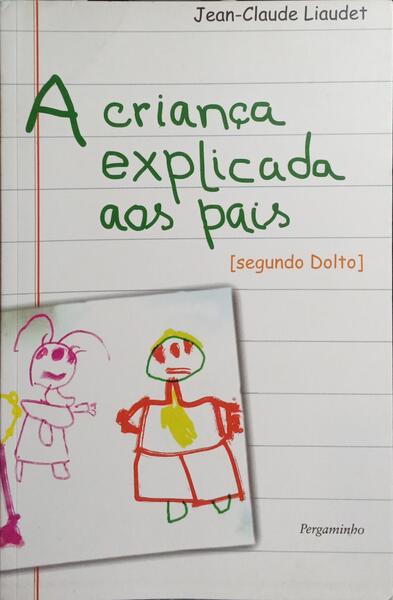 Jean-Claude Liaudet
A criança
explicada
aos pais
[segundo Dolto]
Pergaminho